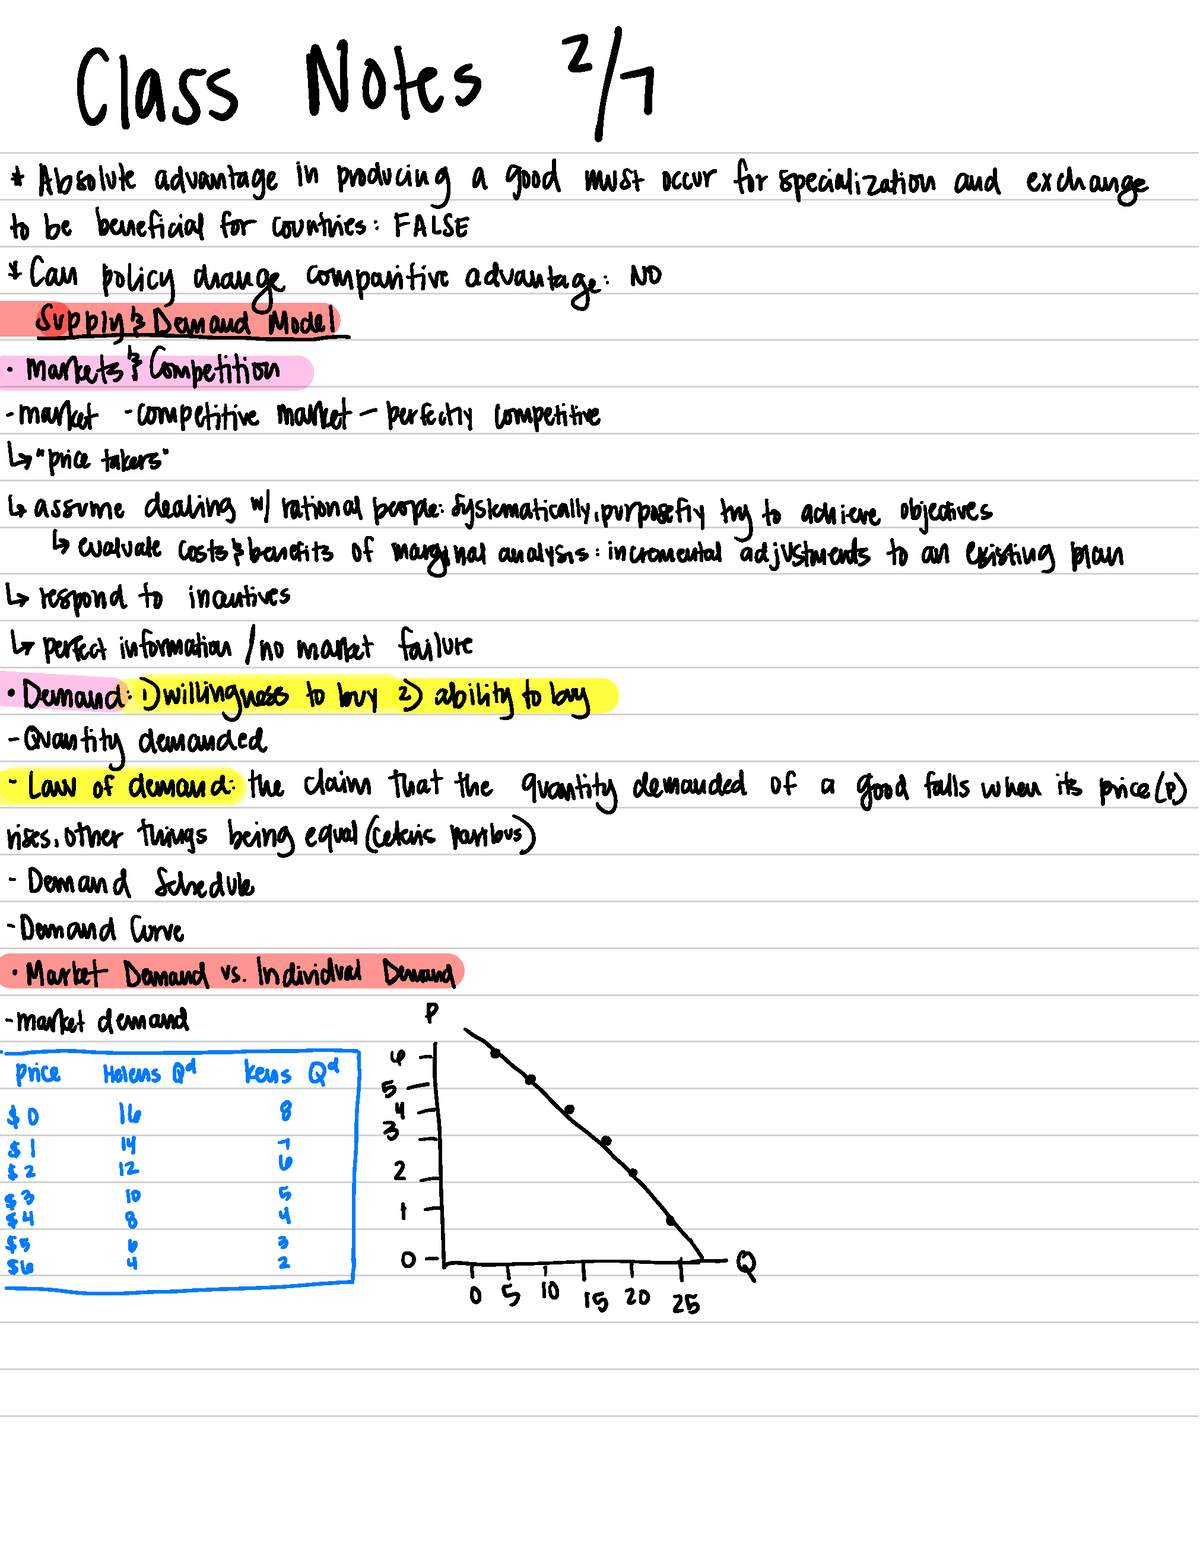 Class Notes 2/7
* Absolute advantage in producing a good must occur for specialization and exchange
to be beneficial for countries: FALSE
* Can policy change comparitive advantage: NO
Supply & Demand Model
• Markets & Competition
- market - competitive market - perfectly competitive
↳ "price takers"
↳ assume dealing w/ rational people: systematically, purposefly try to achieve objectives
↳ evaluate costs & benefits of marginal analysis: incremental adjustments to an existing plan
↳ respond to incentives
↳ perfect information / no market failure
• Demand: 1) willingness to buy 2) ability to buy
- Quantity demanded
- Law of demand: the claim that the quantity demanded of a good falls when its price (P)
rises, other things being equal (Ceteris Paribus)
- Demand Schedule
- Demand Curve
• Market Demand vs. Individual Demand
- market demand
Price Helens Qd Kens Qd
$0 16 8
$1 14 7
$2 12 6
$3 10 5
$4 8 4
$5 6 3
$6 4 2
P
6
5
4
3
2
1
0
Q
0 5 10 15 20 25